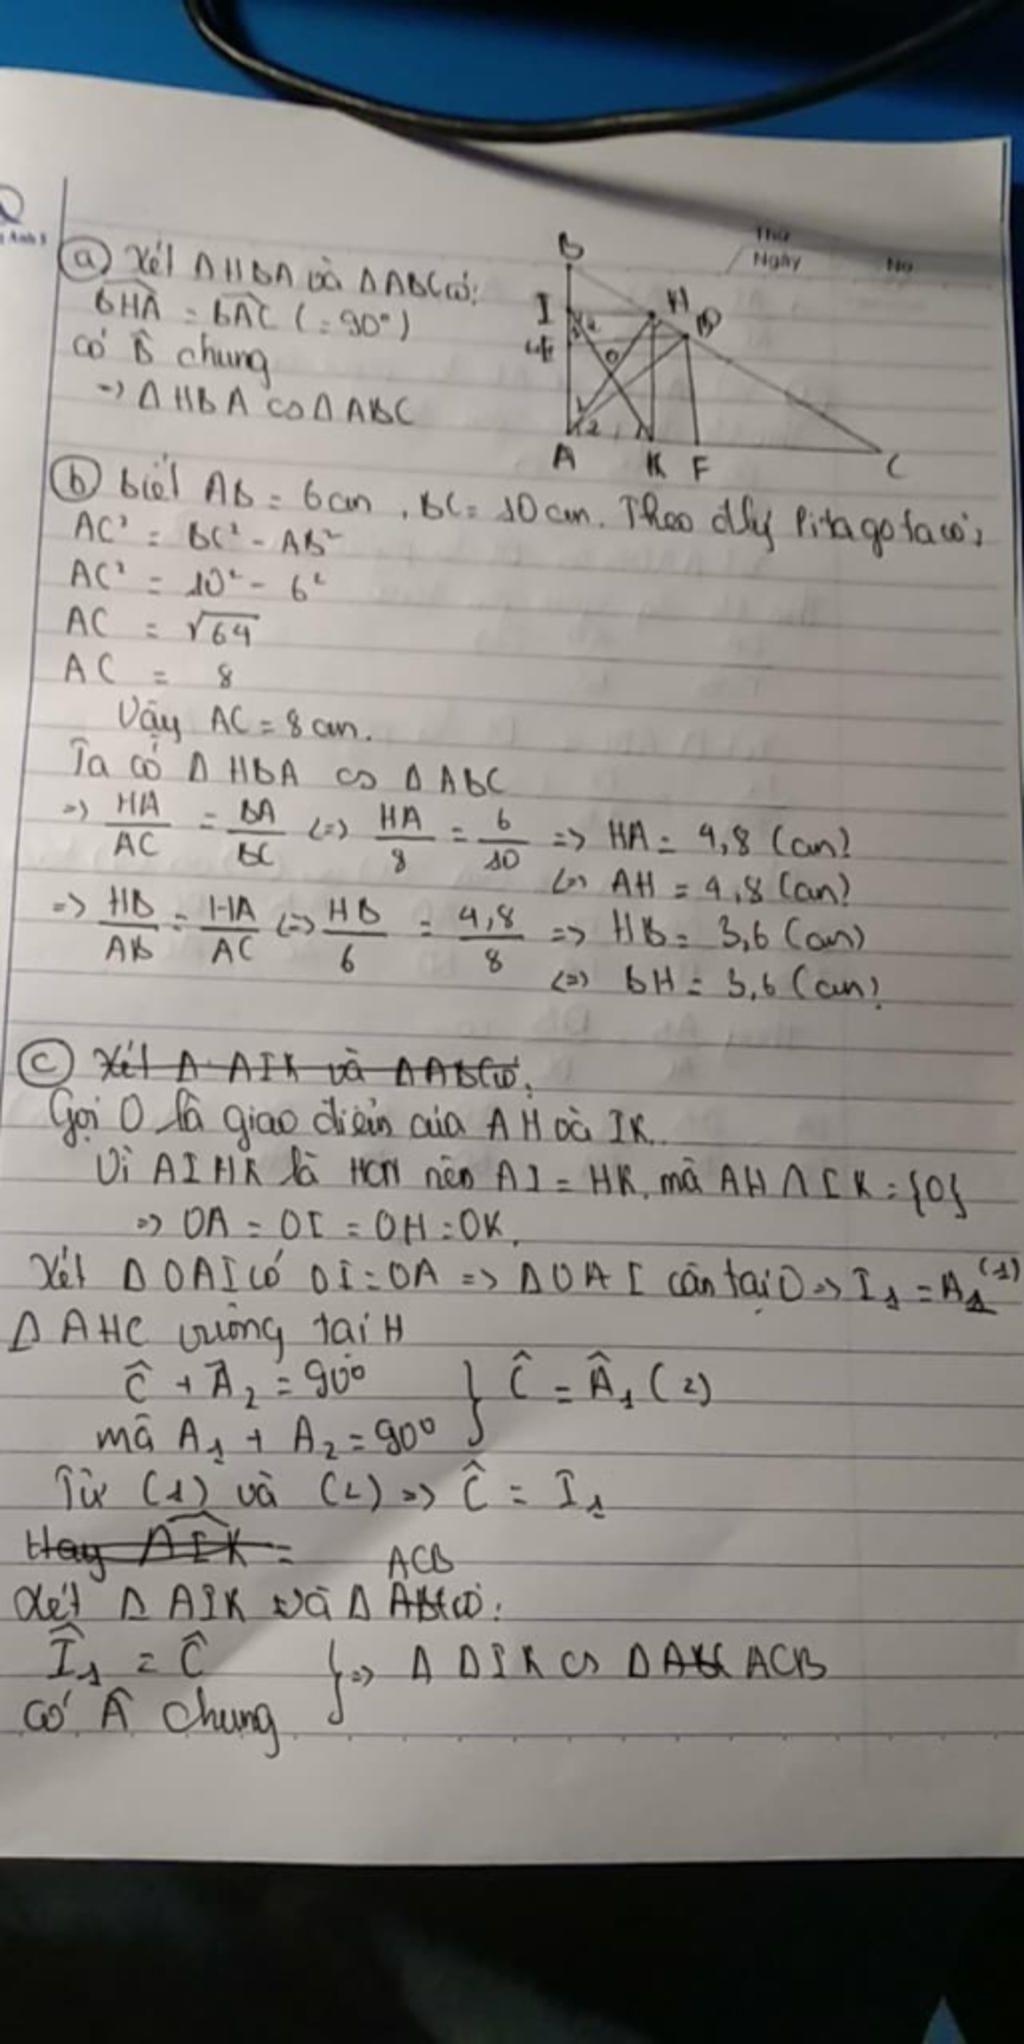 Thứ
Ngày No
Anh 3
a) Xét ΔHBA và ΔABC có:
BHA = BAC (=90°)
có B̂ chung
=> ΔHBA ∽ ΔABC
B
I H D
O
1
2 1
A K F C
b) biết AB = 6cm, BC = 10cm. Theo đlý Pitago ta có:
AC² = BC² - AB²
AC² = 10² - 6²
AC = √64
AC = 8
Vậy AC = 8cm.
Ta có ΔHBA ∽ ΔABC
=> HA/AC = BA/BC <=> HA/8 = 6/10 => HA = 4,8 (cm)
<=> AH = 4,8 (cm)
=> HB/AB = HA/AC <=> HB/6 = 4,8/8 => HB = 3,6 (cm)
<=> BH = 3,6 (cm)
c) Xét Δ AIK và ΔABC có:
Gọi O là giao điểm của AH và IK.
Vì AIHK là HCN nên AI = HK, mà AH ∩ IK = {O}
=> OA = OI = OH = OK.
Xét ΔOAI có OI = OA => ΔOAI cân tại O => I₁ = A₁ (1)
ΔAHC vuông tại H
Ĉ + Â₂ = 90° } Ĉ = Â₁ (2)
mà A₁ + A₂ = 90°
Từ (1) và (2) => Ĉ = I₁
Hay AIK =
ACB
Xét ΔAIK và Δ ABC có:
Î₁ = Ĉ } => Δ AIK ∽ Δ ACB
có Â chung